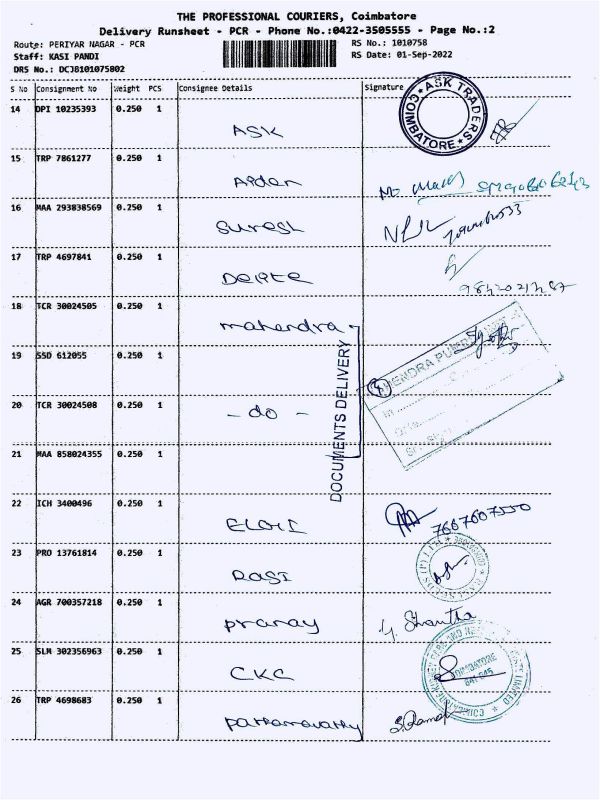 THE PROFESSIONAL COURIERS, Coimbatore
Delivery Runsheet - PCR - Phone No.:0422-3505555 - Page No.:2
Route: PERIYAR NAGAR - PCR
RS No.: 1010758
Staff: KASI PANDI
RS Date: 01-Sep-2022
DRS No.: DCJ8101075802
S No Consignment No Weight PCS Consignee Details Signature
14 DPI 10235393 0.250 1
ASK
ASK TRADERS COIMBATORE
15 TRP 7861277 0.250 1
Aiden
16 MAA 293838569 0.250 1
Suresh
17 TRP 4697841 0.250 1
Deepte
18 TCR 30024505 0.250 1
mahendra
19 SSD 612055 0.250 1
DOCUMENTS DELIVERY
20 TCR 30024508 0.250 1
- do -
21 MAA 858024355 0.250 1
22 ICH 3400496 0.250 1
ELGI
7667607550
23 PRO 13761814 0.250 1
RASI
24 AGR 700357218 0.250 1
Pranay
Shantha
25 SLM 302356963 0.250 1
CKC
COIMBATORE
641 045
26 TRP 4698683 0.250 1